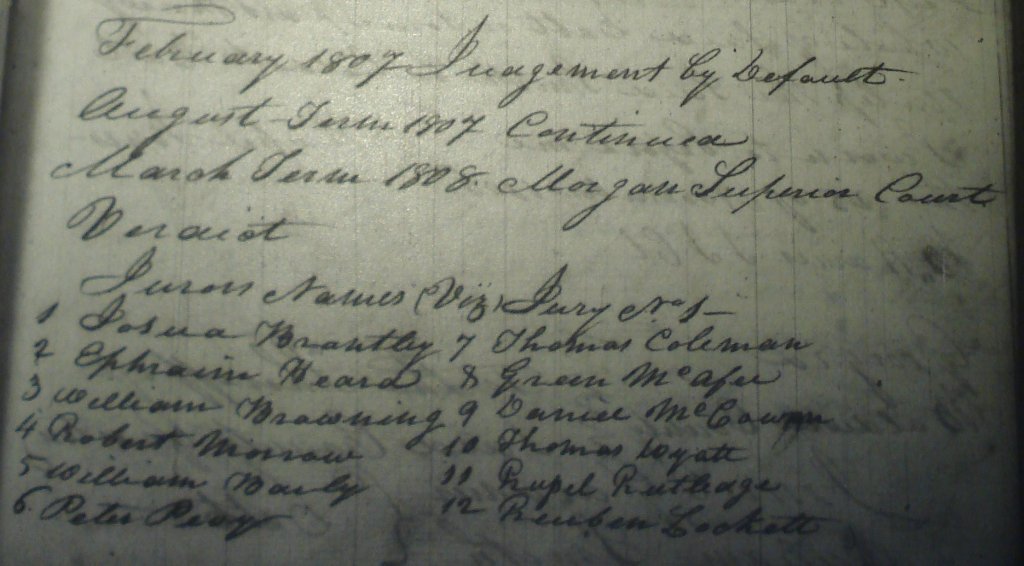 February 1807 Judgement by Default.
August Term 1807 Continued
March Term 1808. Morgan Superior Court
Verdict
Jurors Names (Viz) Jury No 1
1 Josua Brantley 7 Thomas Coleman
2 Ephraim Heard 8 Green McAfee
3 William Browning 9 Daniel
4 Robert Morrow 10 Thomas Wyatt
5 William Baily 11 Rutledge
6 Peter 12 Reuben Lockett